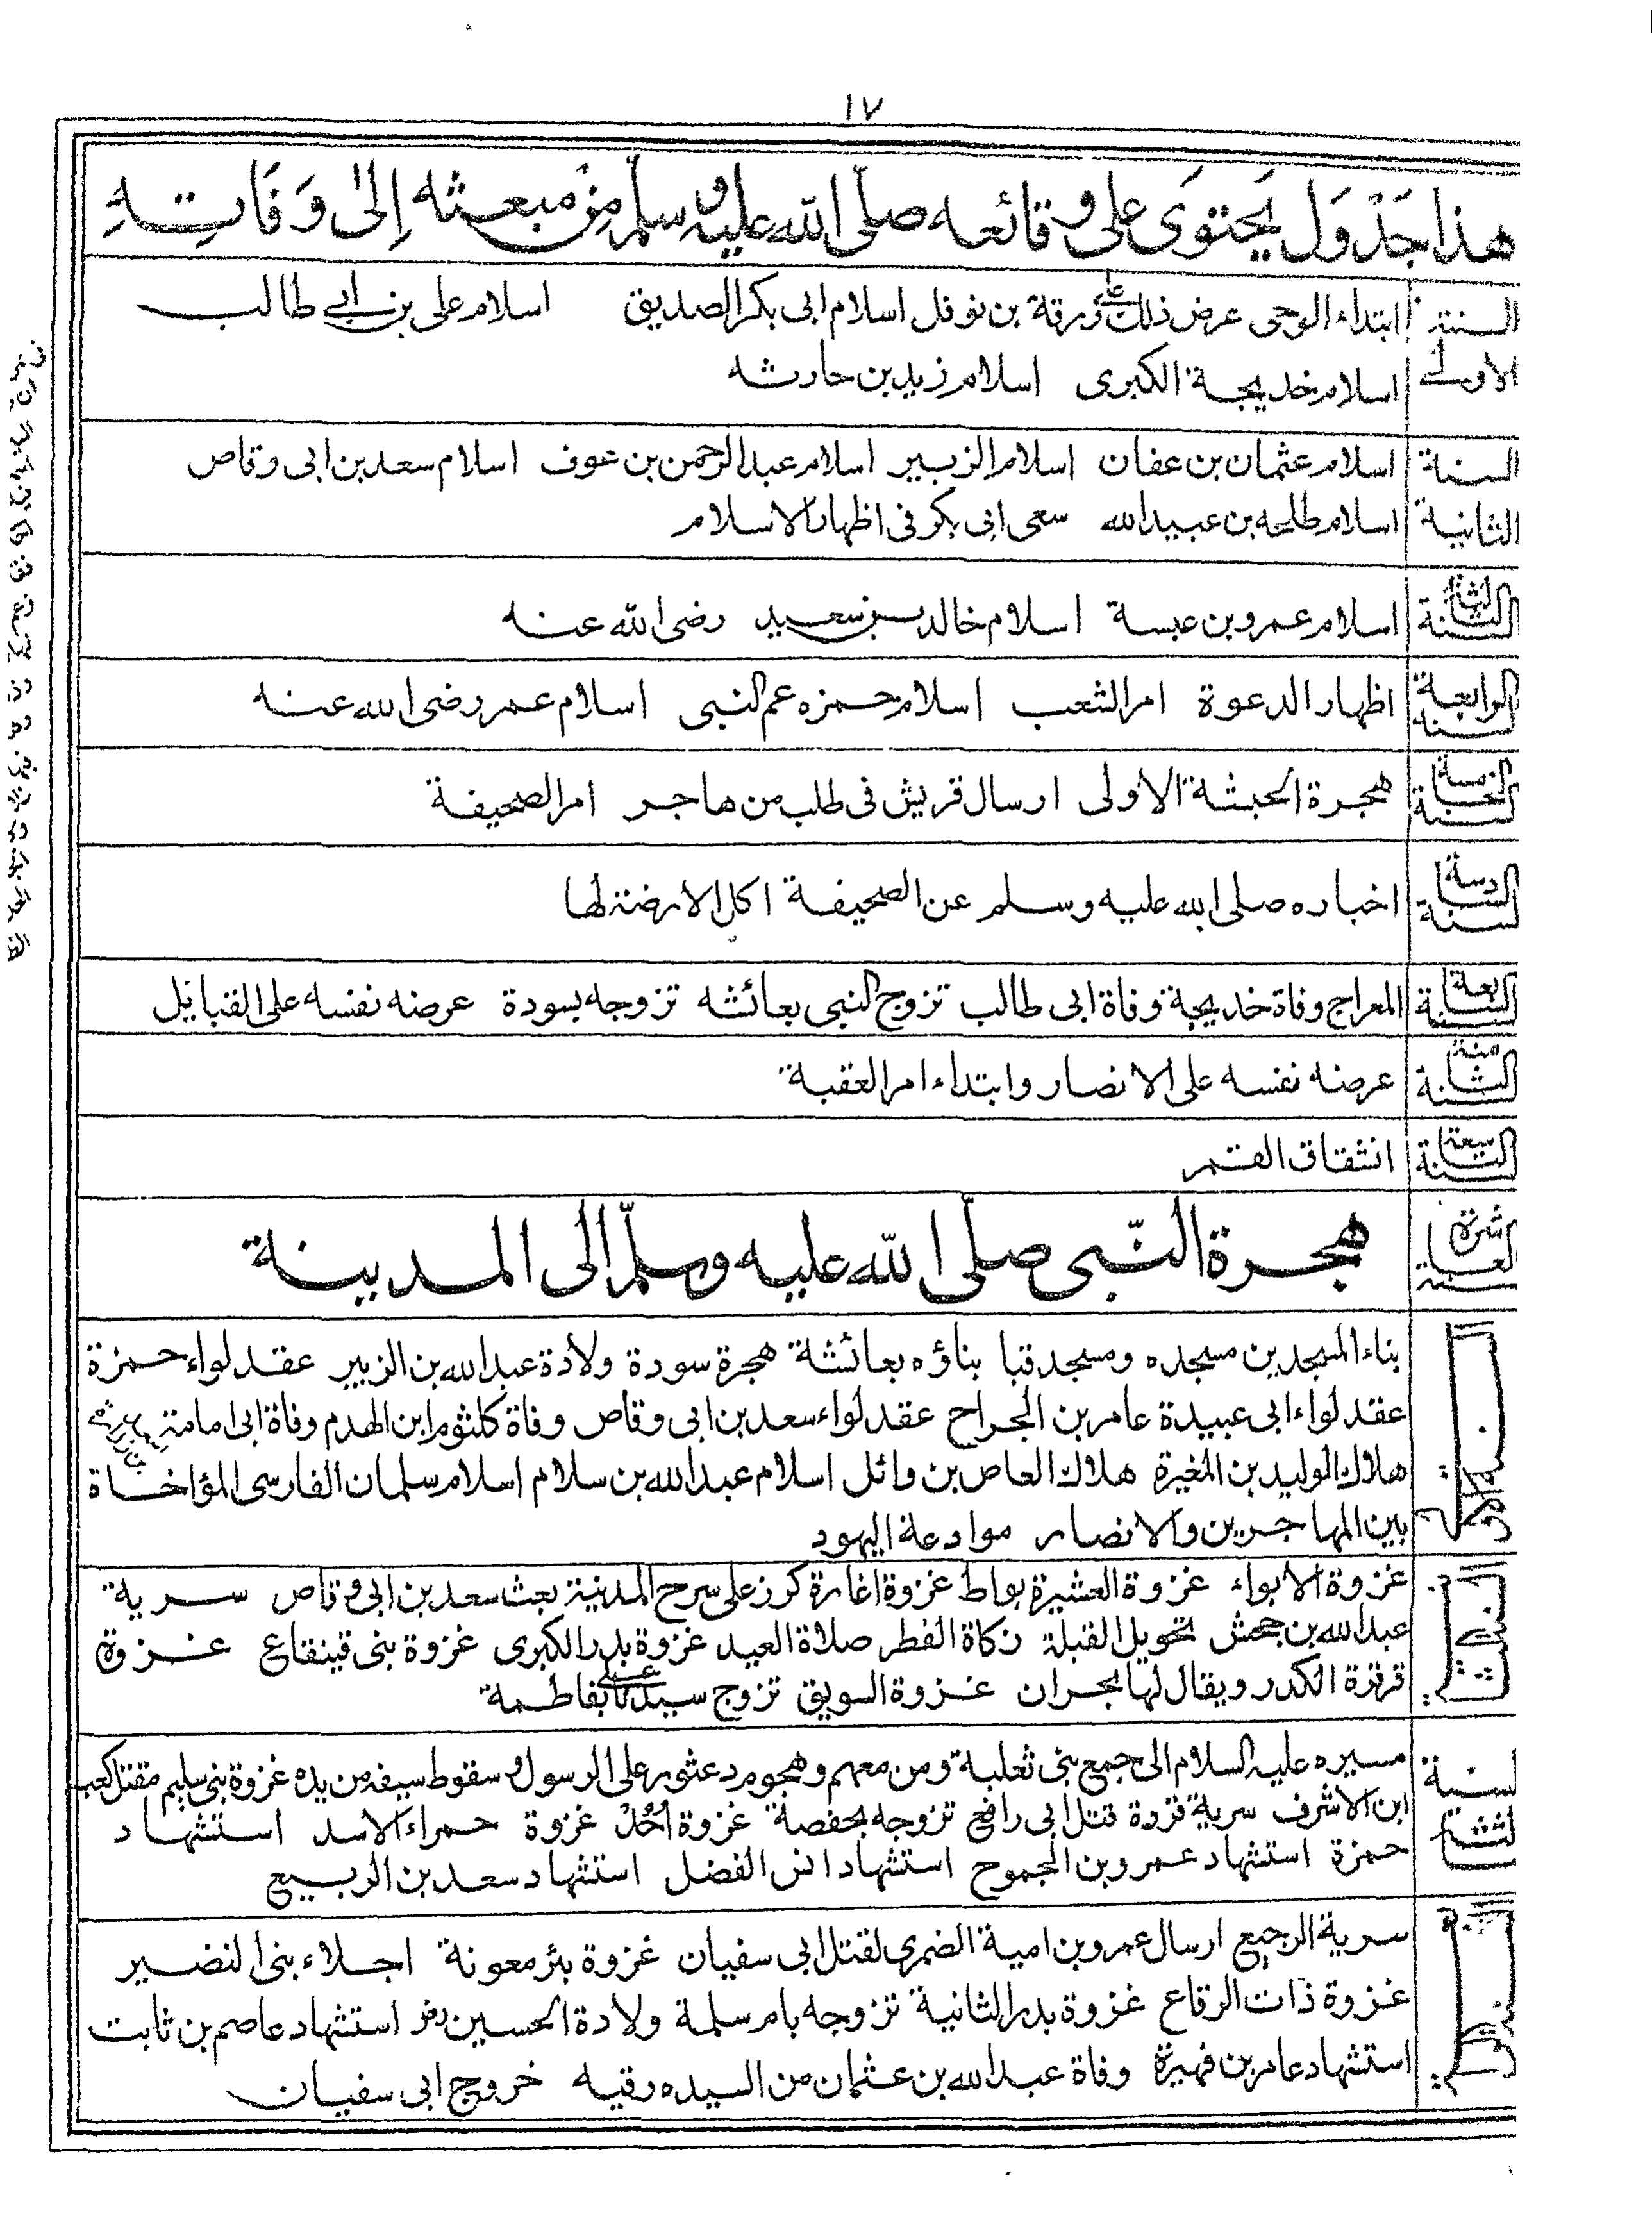 ١٧
هذا جَدْوَل يَحتوَى على وقائعه صلّى الله عليه وسلم مِن مبعثه إِلىٰ وَفَاتِهِ
السنة ابتداء الوحى عرض ذلك على ورقة بن نوفل اسلام ابى بكر الصديق اسلام على بن ابى طالب
الاولى اسلام خديجة الكبرى اسلام زيد بن حارثه
السنة اسلام عثمان بن عفان اسلام الزبير اسلام عبد الرحمن بن عوف اسلام سعد بن ابى وقاص
الثانية اسلام طلحه بن عبيد الله سعى ابى بكر فى اظهار الاسلام
السنة الثالثة اسلام عمرو بن عبسة اسلام خالد بن سعيد رضى الله عنه
السنة الرابعة اظهار الدعوة امر الشعب اسلام حمزه عم النبى اسلام عمر رضى الله عنه
السنة الخامسة هجرة الحبشة الاولى ارسال قريش فى طلب من هاجر امر الصحيفة
السنة السادسة اخباره صلى الله عليه وسلم عن الصحيفة اكل الارضة لها
السنة السابعة المعراج وفاة خديجة وفاة ابى طالب تزوج النبى بعائشه تزوجه بسودة عرضه نفسه على القبائل
السنة الثامنة عرضه نفسه على الانصار وابتداء امر العقبة
السنة التاسعة انشقاق القمر
السنة العاشرة هجرة النّبى صلّى الله عليه وسلّم الى المدينة
بناء المسجدين مسجده ومسجد قبا بناؤه بعائشة هجرة سودة ولادة عبد الله بن الزبير عقد لواء حمزة
عقد لواء ابى عبيدة عامر بن الجراح عقد لواء سعد بن ابى وقاص وفاة كلثوم ابن الهدم وفاة ابى امامة
هلاك الوليد بن المغيرة هلاك العاص بن وائل اسلام عبد الله بن سلام اسلام سلمان الفارسى المؤاخاة
بين المهاجرين والانصار موادعة اليهود
غزوة الابواء غزوة العشيرة بواط غزوة اغارة كرز على سرح المدنية بعث سعد بن ابى وقاص سرية
عبد الله بن جحش تحويل القبلة زكاة الفطر صلاة العيد غزوة بدر الكبرى غزوة بنى قينقاع غزوة
قرقرة الكدر ويقال لها بحران غزوة السويق تزوج سيدنا على بفاطمة
السنة مسيره عليه السلام الى جمع بنى ثعلبة ومن معهم وهجوم دعثور على الرسول وسقوط سيفه من يده غزوة بنى سليم مقتل كعب
الثالثة ابن الاشرف سرية قردة قتل ابى رافع تزوجه بحفصة غزوة أُحُدْ غزوة حمراء الاسد استشهاد
حمزة استشهاد عمرو بن الجموح استشهاد انس الفضل استشهاد سعد بن الربيع
سرية الرجيع ارسال عمرو بن امية الضمرى لقتل ابى سفيان غزوة بئر معونة اجلاء بنى النضير
غزوة ذات الرقاع غزوة بدر الثانية تزوجه بام سلمة ولادة الحسين رضـ استشهاد عاصم بن ثابت
استشهاد عامر بن فهيرة وفاة عبد الله بن عثمان من السيده رقيه خروج ابى سفيان